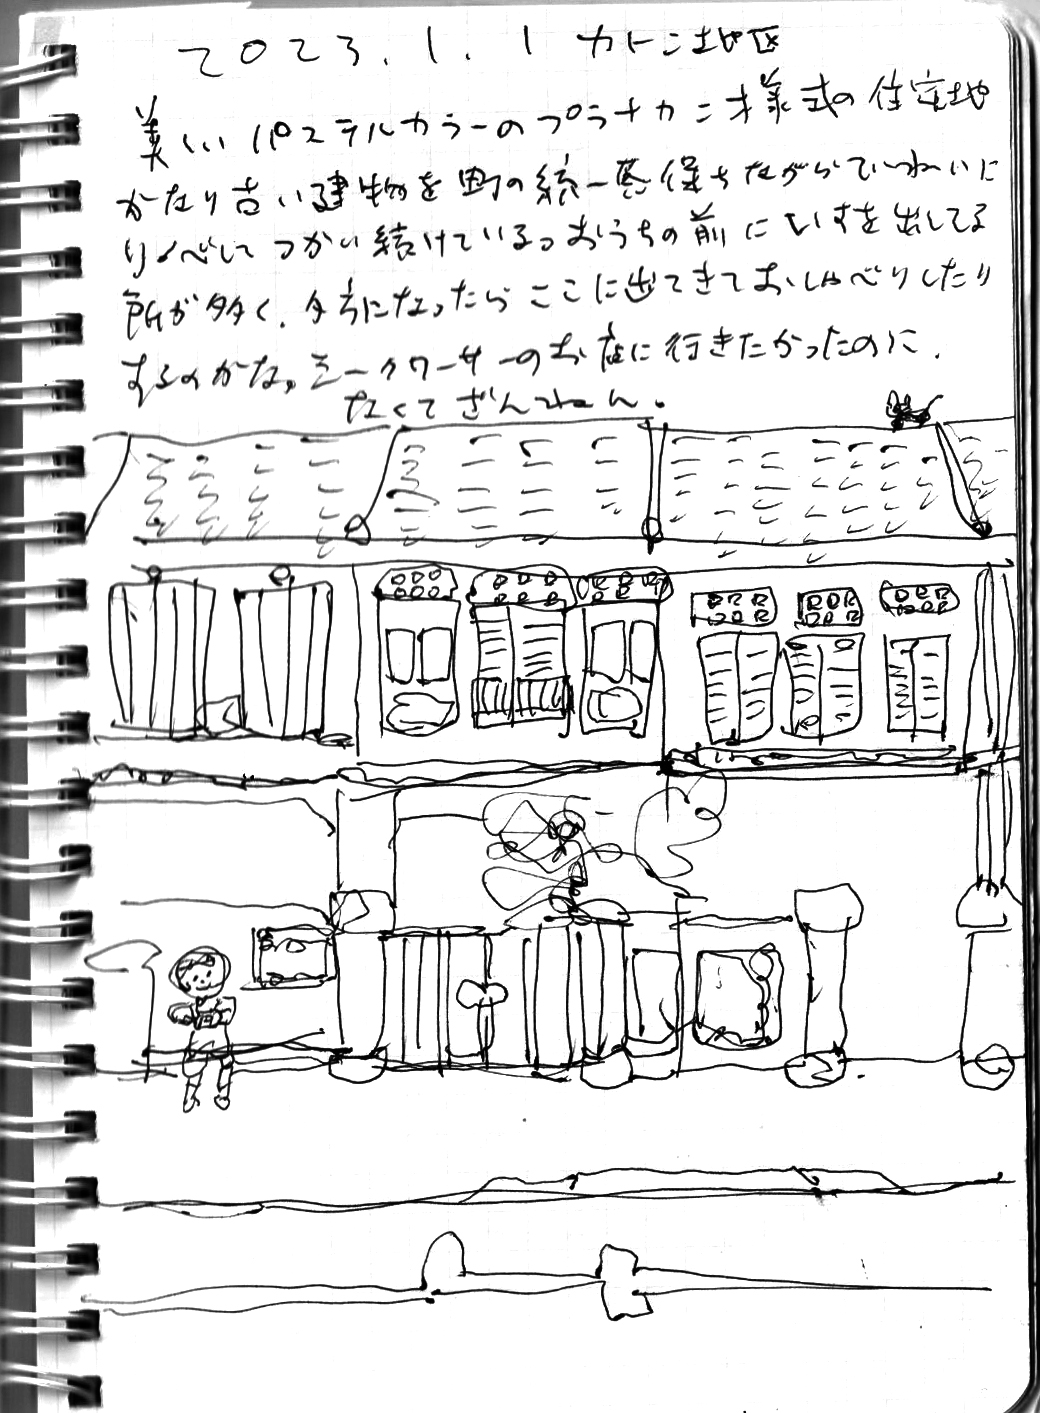 2023.1.1 カトン地区
美しい パステルカラーのプラナカン様式の住宅地
かなり古い建物を町の統一感保ちながらていねいに
リノベしてつかい続けている。おうちの前にいすを出してる
所が多く、夕方になったらここに出てきておしゃべりしたり
するのかな。ミークワーサーのお店に行きたかったのに、
なくてざんねん。